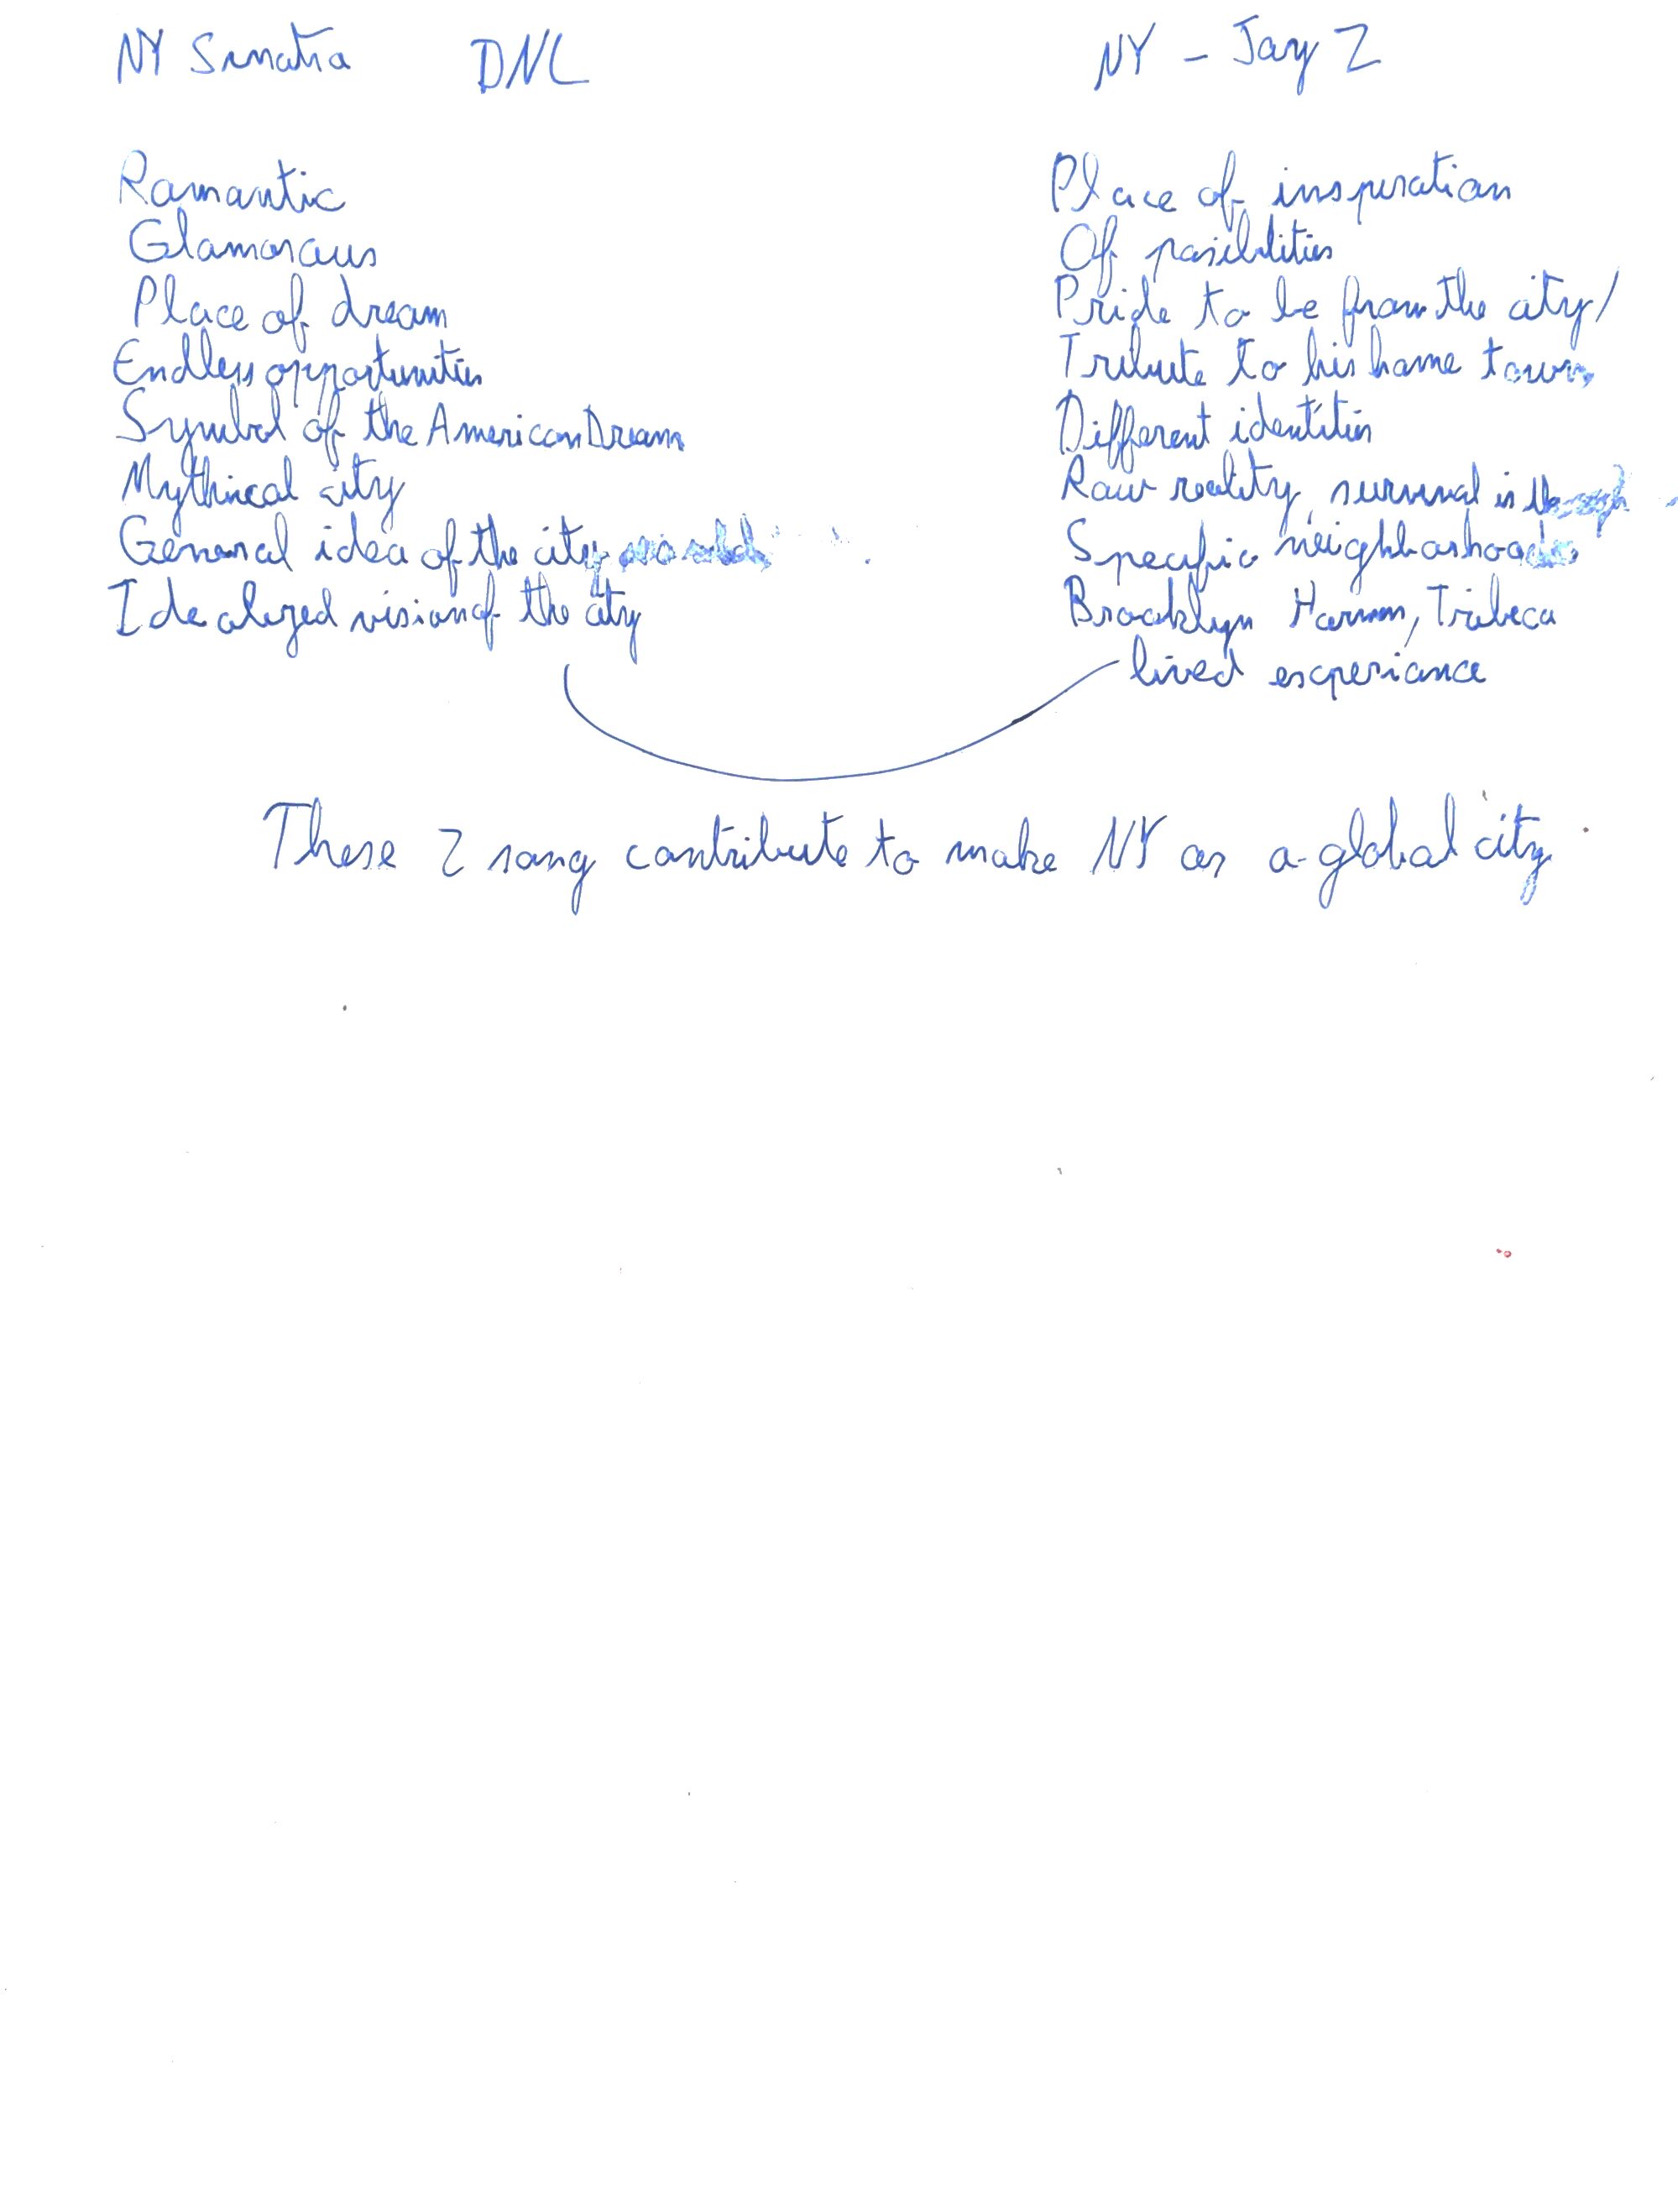 NY Sinatra DNL
Romantic
Glamorous
Place of dream
Endless opportunities
Symbol of the American Dream
Mythical city
General idea of the city
Idealized vision of the city
NY - Jay Z
Place of inspiration
Of posibilities
Pride to be from the city/
Tribute to his home town
Different identities
Raw reality, survival is
Specific neighborhoods
Brooklyn Tribeca
lived experiance
These 2 song contribute to make NY as a global city